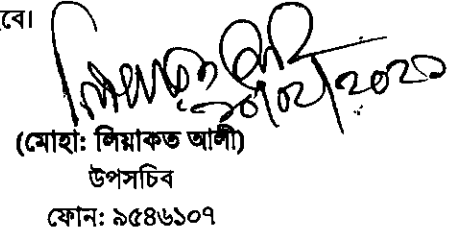 বে।
২০/০২/২০২১
(মোহা: লিয়াকত আলী)
উপসচিব
ফোন: ৯৫৪৬১০৭